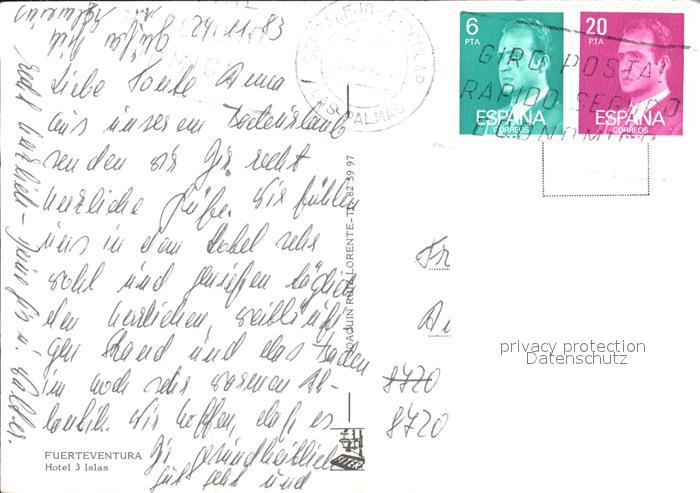 24.11.83
Liebe Tante Anna
aus unserem Badeurlaub
senden wir Dir recht
herzliche Grüße. Wir fühlen
uns in dem Hotel sehr
wohl und genießen täglich
den herrlichen, weitläufi-
gen Strand und das Baden
im noch sehr warmen At-
lantik. Wir hoffen, daß es
Dir gesundheitlich
gut geht und
grüßen
recht herzlich
u. Walter.
FUERTEVENTURA
Hotel 3 Islas
JOAQUIN RUIZ LORENTE-Tf. 82 39 97
LAS PALMAS
GIRO POSTAL
RAPIDO SEGURO
ECONOMICO
6
PTA
ESPAÑA
CORREOS
20
PTA
ESPAÑA
CORREOS
Fr
8720
8720
privacy protection
Datenschutz